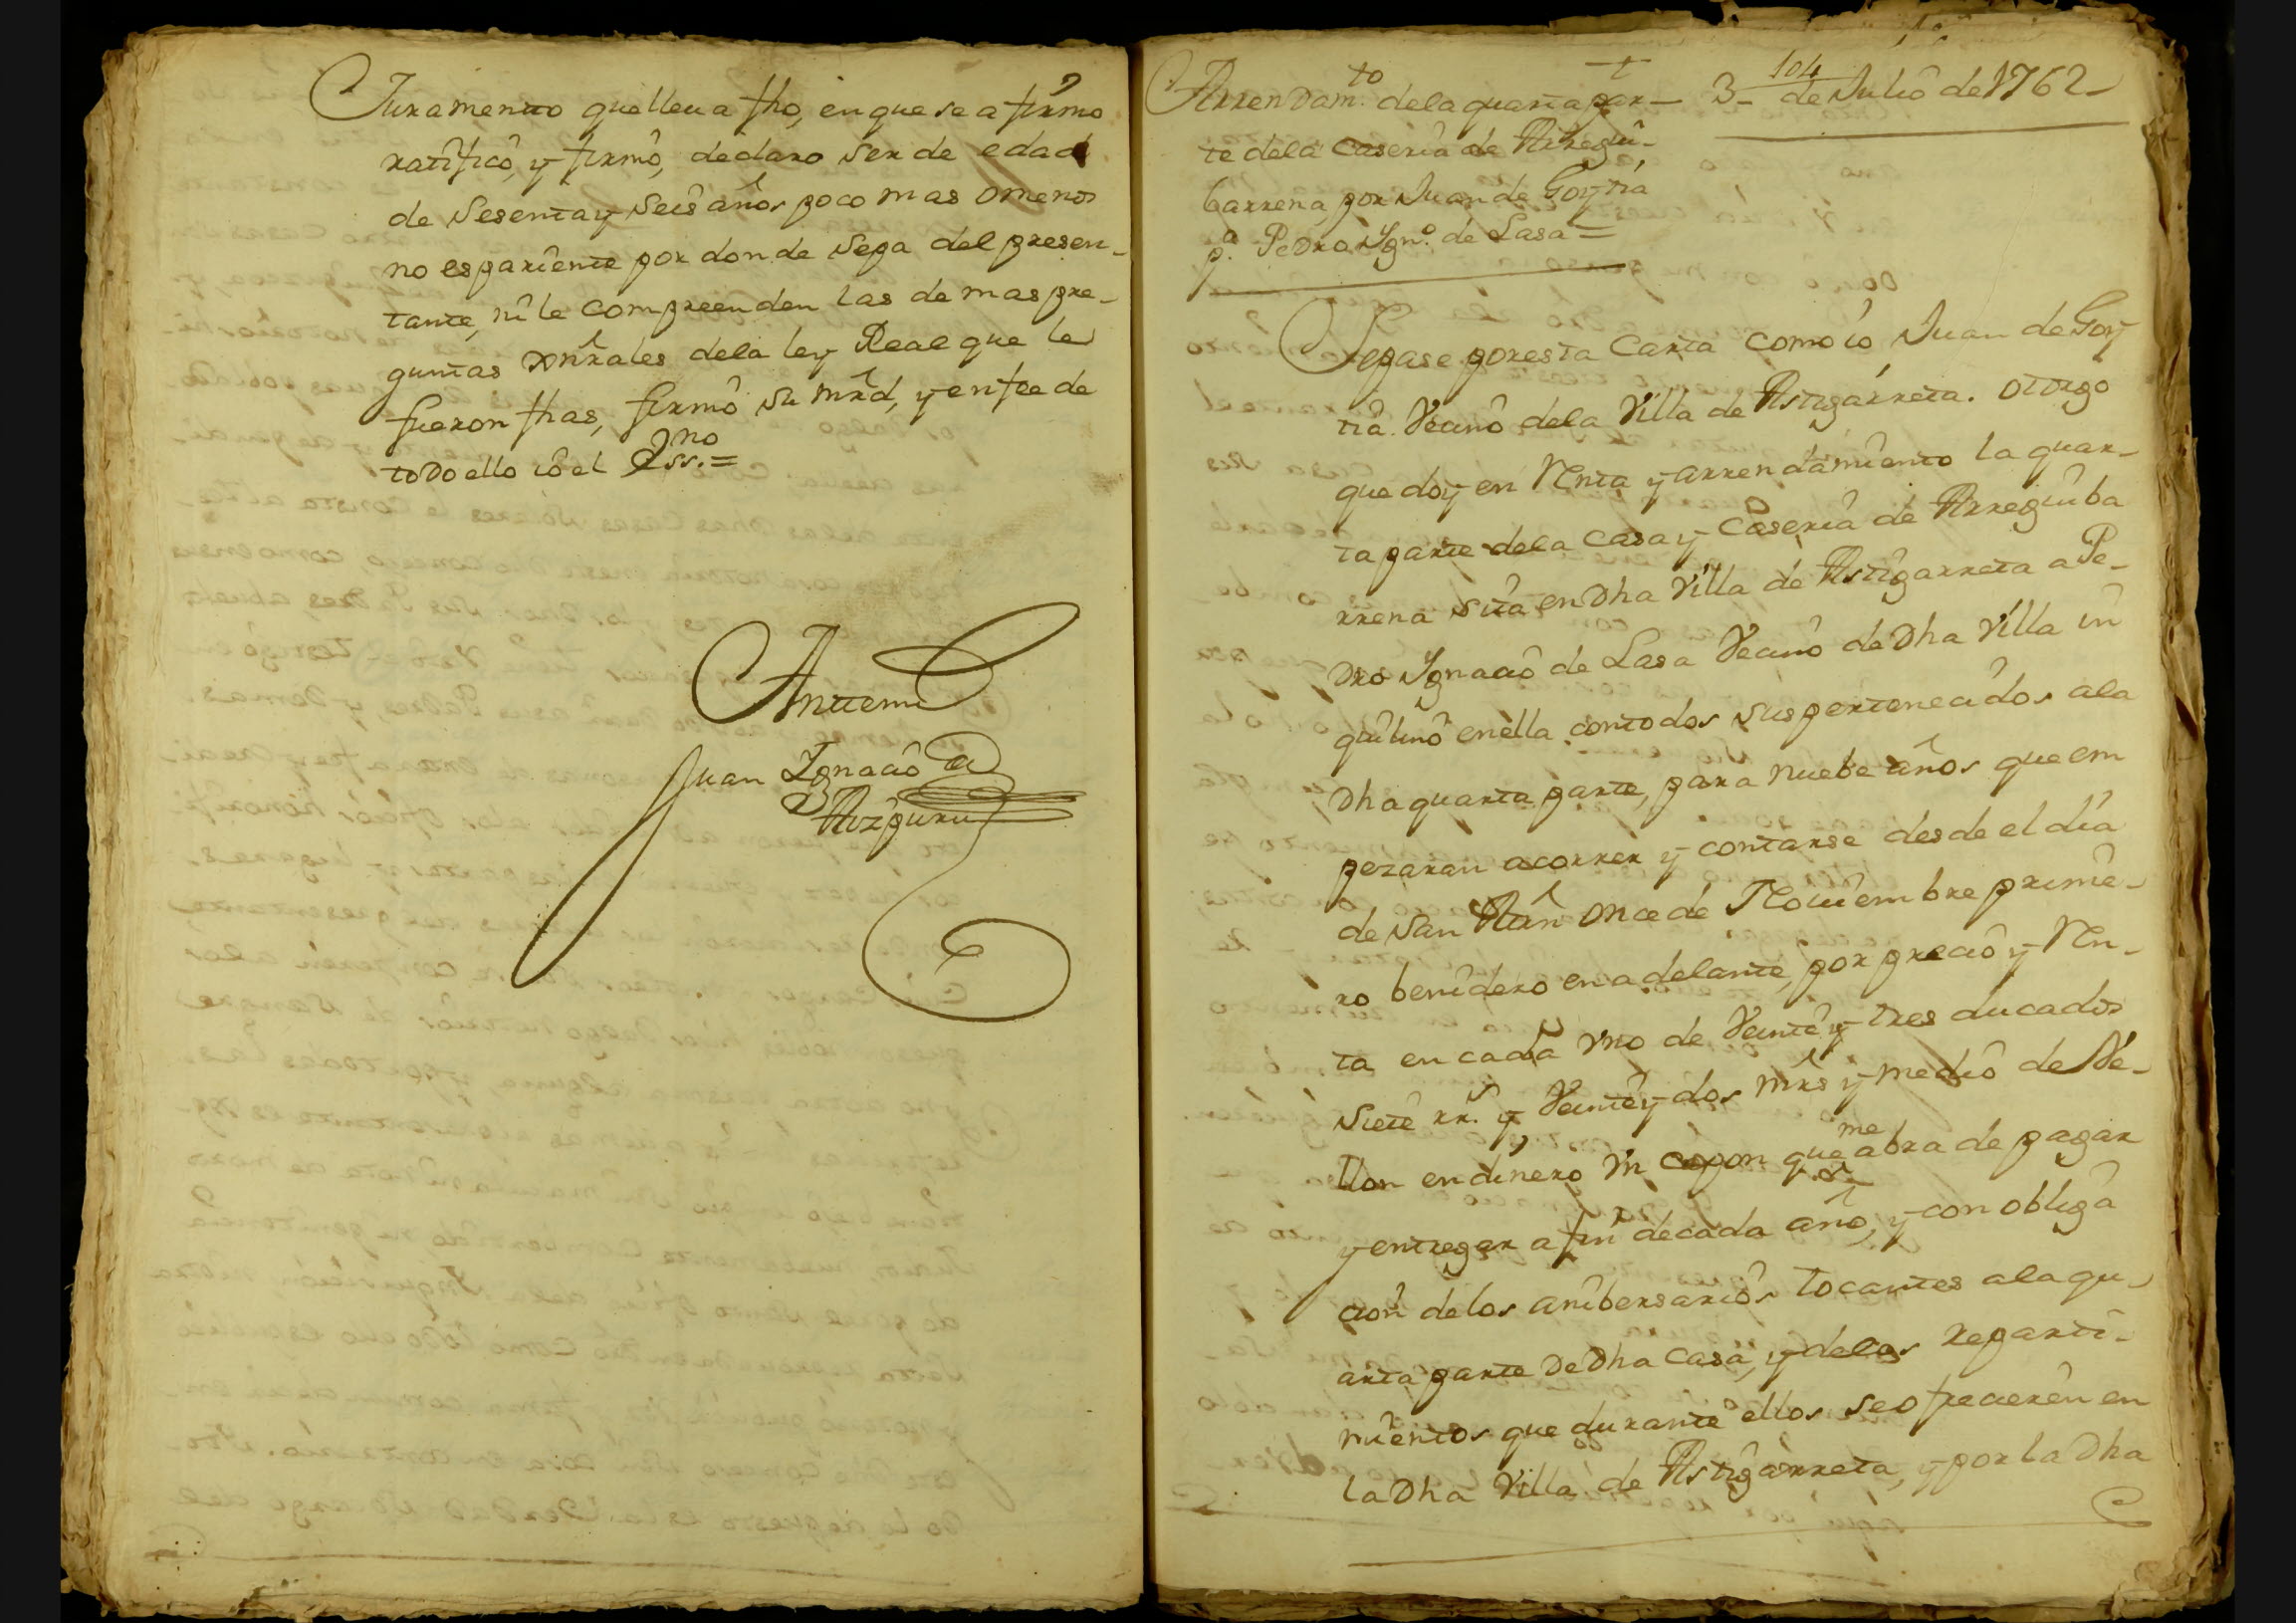 Juramento que lleua fho, en que se afirmo
ratificò, y firmò, declaro ser de edad
de Sesenta y Seis años poco mas omenos
no es pariente por donde Sepa del presen-
tante, ni le compreenden las demas pre-
guntas gnrales dela ley Real que le
fueron fhas, firmò su mrd, y en fee de
todo ello iò el Essno. =
Antemi
Juan Ignacio de
Aizpuru
104
Arrendamto. dela quarta par-
3- de Julio de 1762-
te dela caseria de Arregui-
barrena, por Juan de Goytia
pa. Pedro Ygno. de Lasa =
Sepase por esta Carta como io Juan de Goy
tia. Vecino dela Villa de Astigarreta. otorgo
que doy en Renta y arrendamiento la quar-
ta parte dela casa y Caseria de Arreguiba
rrena sita en Dha Villa de Astigarreta a Pe-
dro Ygnacio de Lasa Vecino de Dha Villa in
quilino en ella con todos sus pertenecidos ala
Dha quarta parte, para nuebe años que em
pezaran acorrer y contarse desde el dia
de San Mrn once de Nouiembre prime-
ro benidero en adelante, por precio y Ren-
ta en cada vno de Veinte y tres ducados
Siete rrs. y Veinte y dos mrs y medio de Ve-
llon en dinero Vn capon que me abra de pagar
y entregar a fin de cada año, y con obliga
cion delos anibersarios tocantes ala qu-
arta parte de Dha Casa, y delos reparti-
mientos que durante ellos se ofrecieren en
la Dha Villa de Astigarreta, y por la Dha